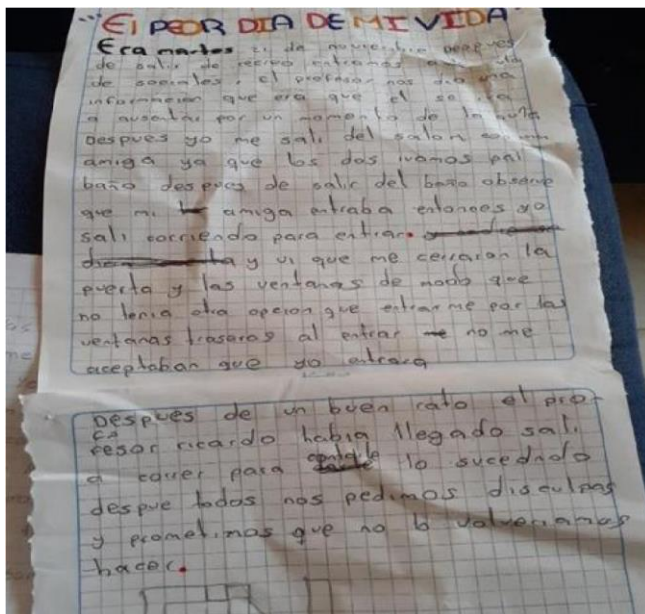 "El PEOR DIA DE MI VIDA
Era martes 21 de noviembre despues
de salir de recreo entramos
de sociales, el profesor nos dio una
informacion que era que el se iba
a ausentar por un momento de la aula
Despues yo me sali del salon con mi
amiga ya que los dos ivamos pal
baño despues de salir del baño observe
que mi amiga entraba entonges yo
sali corriendo para entrar.
y vi que me cerraron la
puerta y las ventanas de modo que
no tenia otra opcion que entrarme por las
ventanas traseras al entrar no me
aceptaban que yo entrara
Despues de un buen rato el pro-
fesor ricardo habia llegado sali
a correr para contarle lo sucedido
despue todos nos pedimos disculpas
y prometimos que no lo volveriamos
hacer.